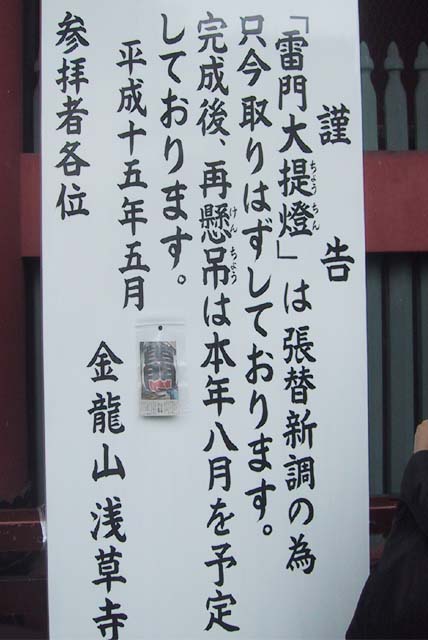 謹告
「雷門大提燈」は張替新調の為
ちょうちん
只今取りはずしております。
完成後、再懸吊は本年八月を予定
けんちょう
しております。
平成十五年五月
参拝者各位
金龍山 浅草寺